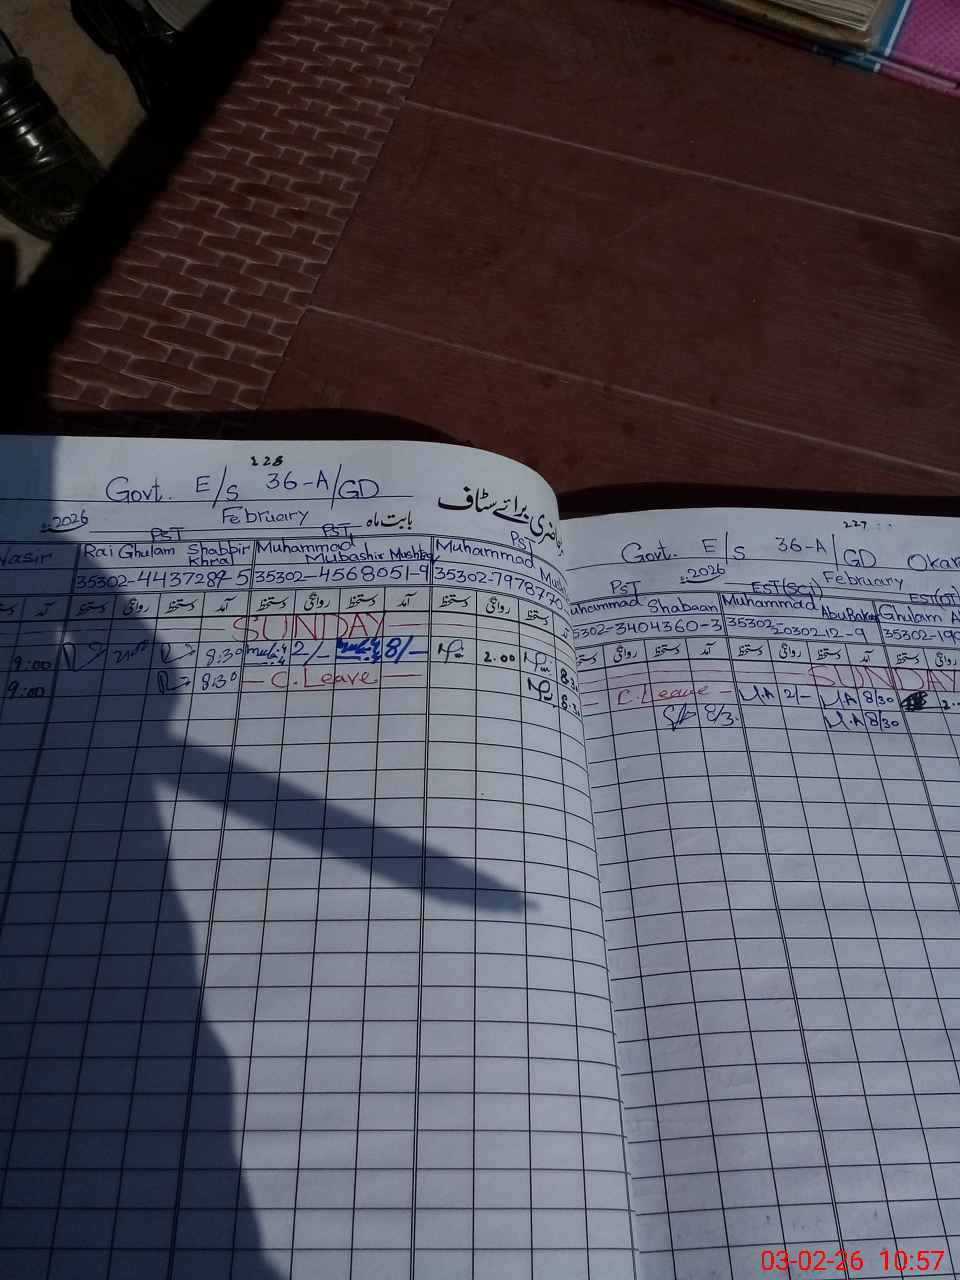 228
Govt. E/S 36-A/GD
حاضری برائے سٹاف
2026 February بابت ماہ
PST PST PST
Nasir Rai Ghulam Shabbir Khral Muhammad Mubashir Mushtaq Muhammad
35302-4437287-5 35302-4568051-9 35302-797870
آمد دستخط روانگی دستخط آمد دستخط روانگی دستخط آمد دستخط روانگی دستخط آمد
SUNDAY
9:00 8:30 2/- 8/- 2.00 8.30
9:00 8:30 C.Leave 8.30
227
Govt. E/S 36-A/GD Okar
2026 February
PST EST(Sci)
Muhammad Shabaan Muhammad Abu Baker Ghulam A
35302-3404360-3 35302-20302 12-9 35302-190
دستخط روانگی دستخط آمد دستخط روانگی دستخط آمد دستخط روانگی
SUNDAY
C.Leave M.A 2/- M.A 8/30 2.
8/3. M.A 8/30
03-02-26 10:57